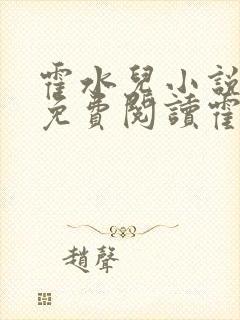 霍水兒小說
免費閱讀霍
趙聲